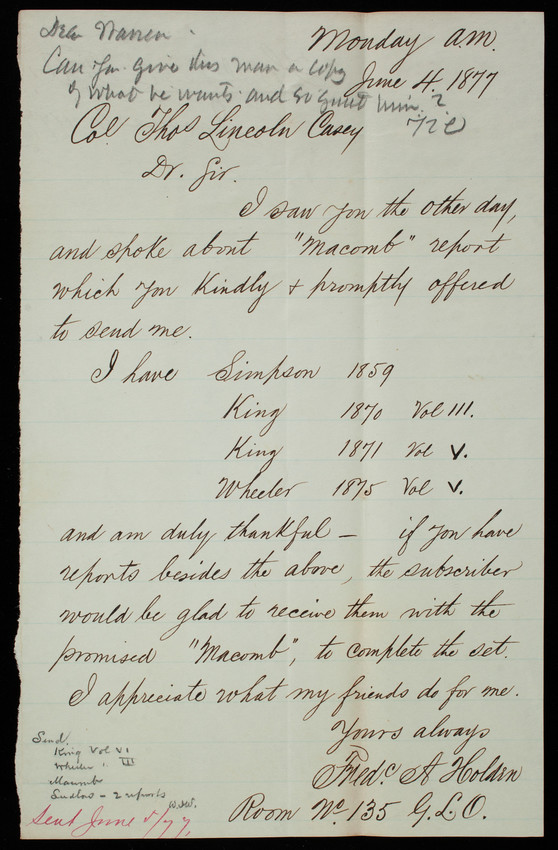 Dear Warren.
Can you give this man a copy
of what he wants and so quiet him?
TLC
Monday a.m.
June 4. 1877
Col. Thos Lincoln Casey
Dr. Sir.
I saw you the other day,
and spoke about "Macomb" report
which you Kindly & promptly offered
to send me.
I have Simpson 1859
King 1870 Vol III.
King 1871 Vol V.
Wheeler 1875 Vol V.
and am duly thankful — if you have
reports besides the above, the subscriber
would be glad to receive them with the
promised "Macomb", to complete the set.
I appreciate what my friends do for me.
Yours always
Fredc. A Holden
Room No. 135 G.L.O.
Send.
King Vol VI
Wheeler " III
Macomb
Ludlow - 2 reports
Sent June 5/77,